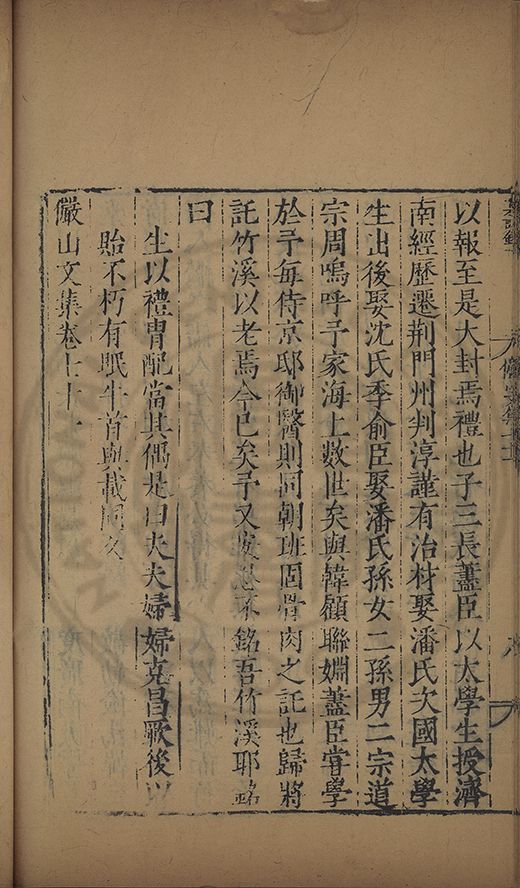 以報至是大封焉禮也子三長藎臣以太學生授濟
南經歷遷荆門州判淳謹有治材娶潘氏次國太學
生出後娶沈氏季俞臣娶潘氏孫女二孫男二宗道
宗周嗚呼予家海上數世矣與韓顧聯姻藎臣嘗學
於予每侍京邸御醫則同朝班固骨肉之託也歸將
託竹溪以老焉今已矣予又忍不銘吾竹溪耶銘
曰
生以禮冑配當其偶是曰夫夫婦婦克昌厥後以
貽不朽有眠牛首與載同久
儼山文集卷七十一